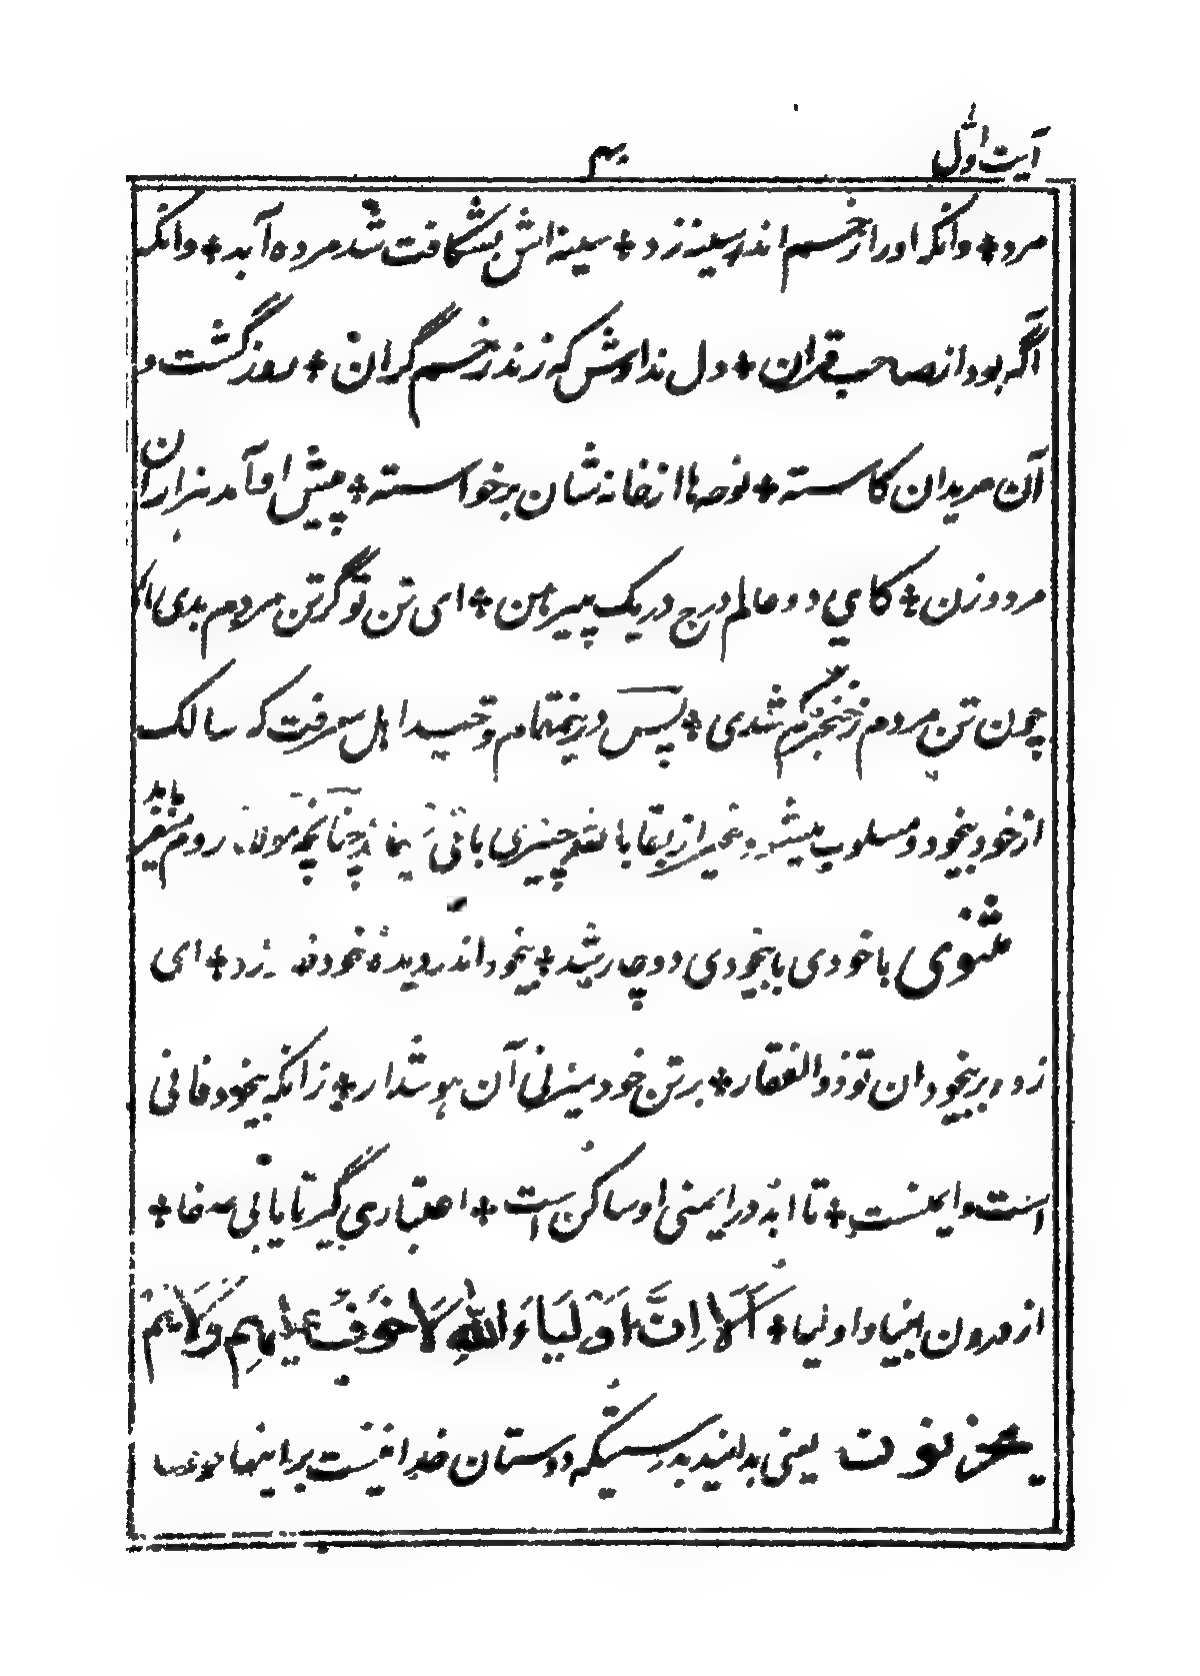 آیت اول
مرد + وانکه او را زخم اندر سینه زد + سینه اش بشکافت شد مرده آبد + وانکه
آگه بود از صاحب قران + دل ندادش که زند زخم گران + روز گشت و
آن مریدان کاسته + نوحها از خانه شان برخواسته + پیش او آمد هزاران
مرد و زن + کای دو عالم درج در یک پیرهن + ای تن تو گر تن مردم بدی
چون تن مردم ز خنجر گم شدی + پس درینمقام توحید اهل معرفت که سالک
از خود بیخود و مسلوب میشود غیر از بقا بالله چیزی باقی نماند چنانچه مولانا روم میفر
ماید
مثنوی باخودی با بیخودی دوچار شد + بیخود اندر دیده خود زد + ای
زده بر بیخودان تو ذوالفقار + بر تن خود میزنی آن هوشدار + زانکه بیخود فانی
است و ایمنست + تا ابد در ایمنی او ساکن است + اعتباری گیر تا یابی صفا +
از درون انبیا و اولیا + اَلَا اِنَّ اَوْلِیَاءَ اللّٰهِ لَا خَوْفٌ عَلَیْهِمْ وَلَا هُمْ
یحزنون یعنی بدانید بدرستیکه دوستان خدا نیست بر اینها